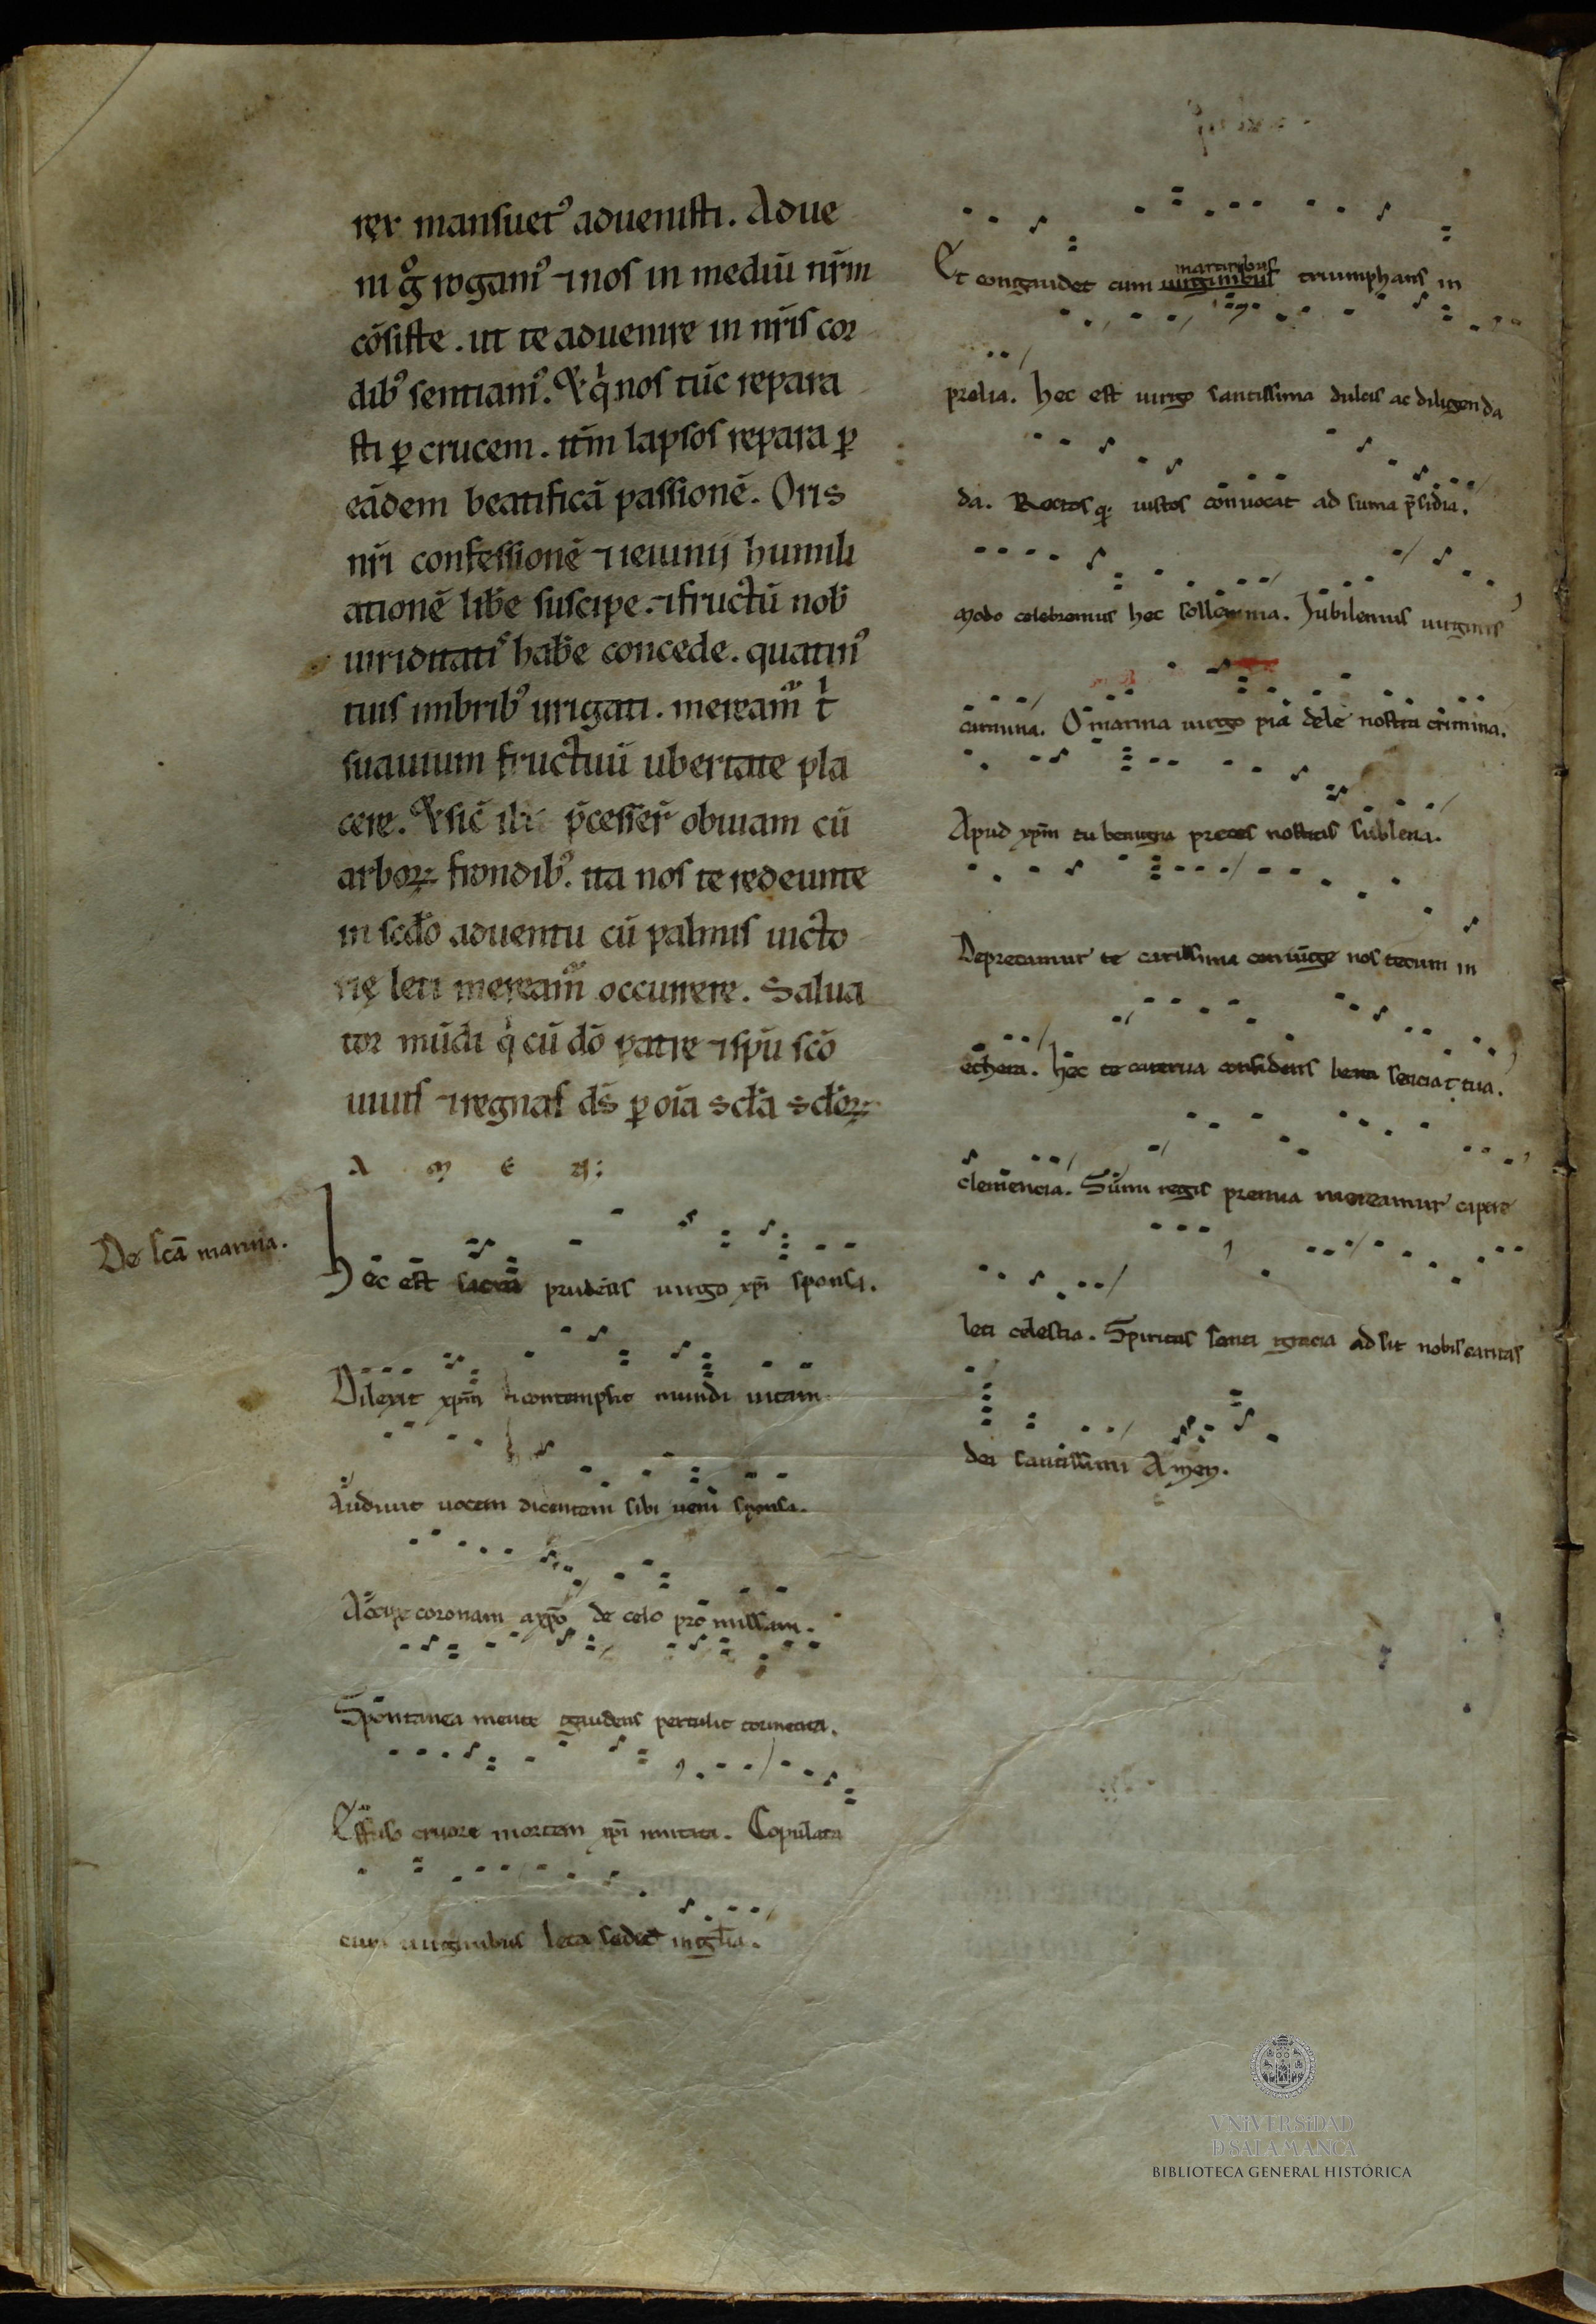 rex mansuet᾽ aduenisti. Adue
ni g̊ rogam᾽ ⁊ nos in mediū nr̄m
cōsiste. ut te aduenire in nr̄is cor
dib᾽ sentiam᾽. & q̇ nos tūc repara
sti ꝑ crucem. itm̄ lapsos repara ꝑ
eādem beatificā passionē. Oris
nr̄i confessionē ⁊ ieiunij humili
ationē lib̄e suscipe. ⁊ fructū nob̄
uiriditati᾽ hab̄e concede. quatin᾽
tuis imbrib᾽ irrigati. meream᾽ t̄
suauium fructuū ubertate pla
cere. & sic̄ p̄cesser̄ obuiam cū
arboꝝ frondib᾽. ita nos te redeunte
in scdo aduentu cū palmis uicto
rię leti meream᾽ occurrere. Salua
tor mūdi q̇ cū dō patre ⁊ spū scō
uiuis ⁊ regnas ds̄ ꝑ oīa scl̄a scl̄oꝝ
A M E N:
De scā marina.
Hec est sacra prudēns uirgo xp̄i sponsa.
Dilexit xp̄m ⁊ contempsit mundi uitam.
Audiuit uocem dicentem sibi ueni sponsa.
Accipe coronam a xp̄o de celo promissam.
Spontanea mente gaudens pertulit tormenta.
Effuso cruore mortem xp̄i imitata. Copulata
cum uirginibus leta sedet in gl̄ia.
Et congaudet cum uirginibus martiribus triumphans in
prelia. Hec est uirgo santissima dulcis ac diligenda
da. Rectos q; iustos conuocat ad suma p̄sidia.
Modo celebremus hec sollemnia. Jubilemus uirginis
carmina. O marina uirgo pia dele nostra crimina.
Apud xp̄m tu benigna preces nostras subleua.
Deprecamur te carissima coniunge nos tecum in
ethera. Hec te caterua confidens bena senciat tua.
clemencia. Sūmi regis premia mereamur capere
leti celestia. Spiritus santi gracia adsit nobis caritas
dei santissimi Amen.
VNiVERSiDAD
D SALAMANCA
BIBLIOTECA GENERAL HISTÓRICA